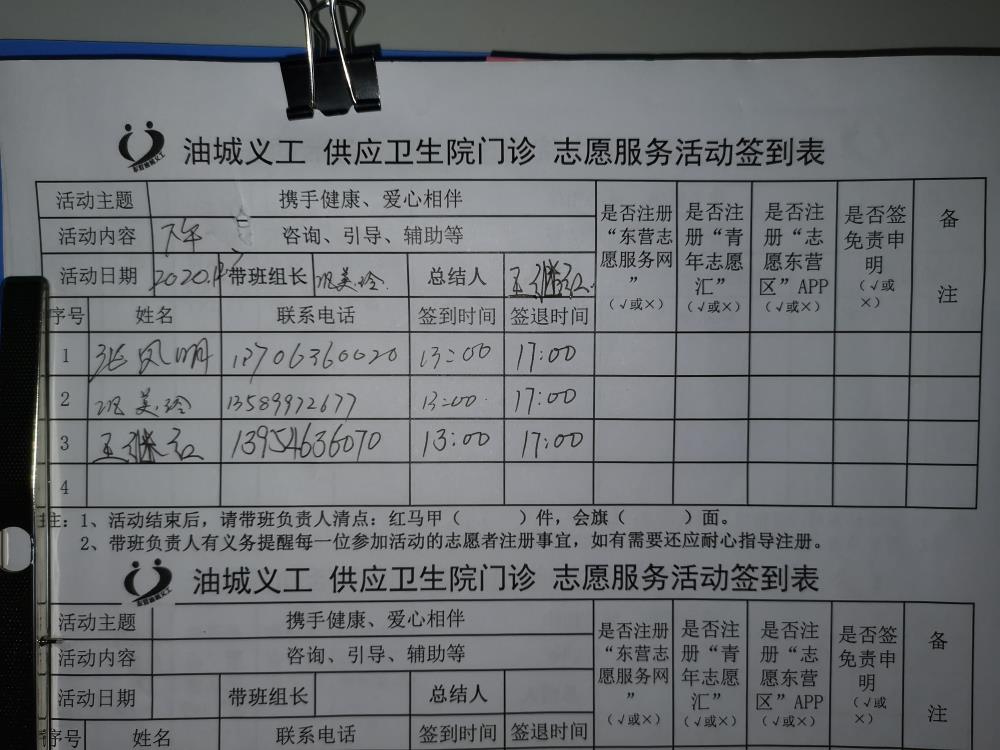 油城义工 供应卫生院门诊 志愿服务活动签到表
活动主题 携手健康、爱心相伴 是否注册“东营志愿服务网”(√或×) 是否注册“青年志愿汇”(√或×) 是否注册“志愿东营区”APP(√或×) 是否签免责申明(√或×) 备注
活动内容 下午 咨询、引导、辅助等
活动日期 2020. 带班组长 美玲 总结人 王继红
序号 姓名 联系电话 签到时间 签退时间
1 张凤明 13706360020 13:00 17:00
2 美玲 13589972677 13:00 17:00
3 王继红 13954636070 13:00 17:00
4
注：1、活动结束后，请带班负责人清点：红马甲（ ）件，会旗（ ）面。
2、带班负责人有义务提醒每一位参加活动的志愿者注册事宜，如有需要还应耐心指导注册。
油城义工 供应卫生院门诊 志愿服务活动签到表
活动主题 携手健康、爱心相伴 是否注册“东营志愿服务网”(√或×) 是否注册“青年志愿汇”(√或×) 是否注册“志愿东营区”APP(√或×) 是否签免责申明(√或×) 备注
活动内容 咨询、引导、辅助等
活动日期 带班组长 总结人
序号 姓名 联系电话 签到时间 签退时间